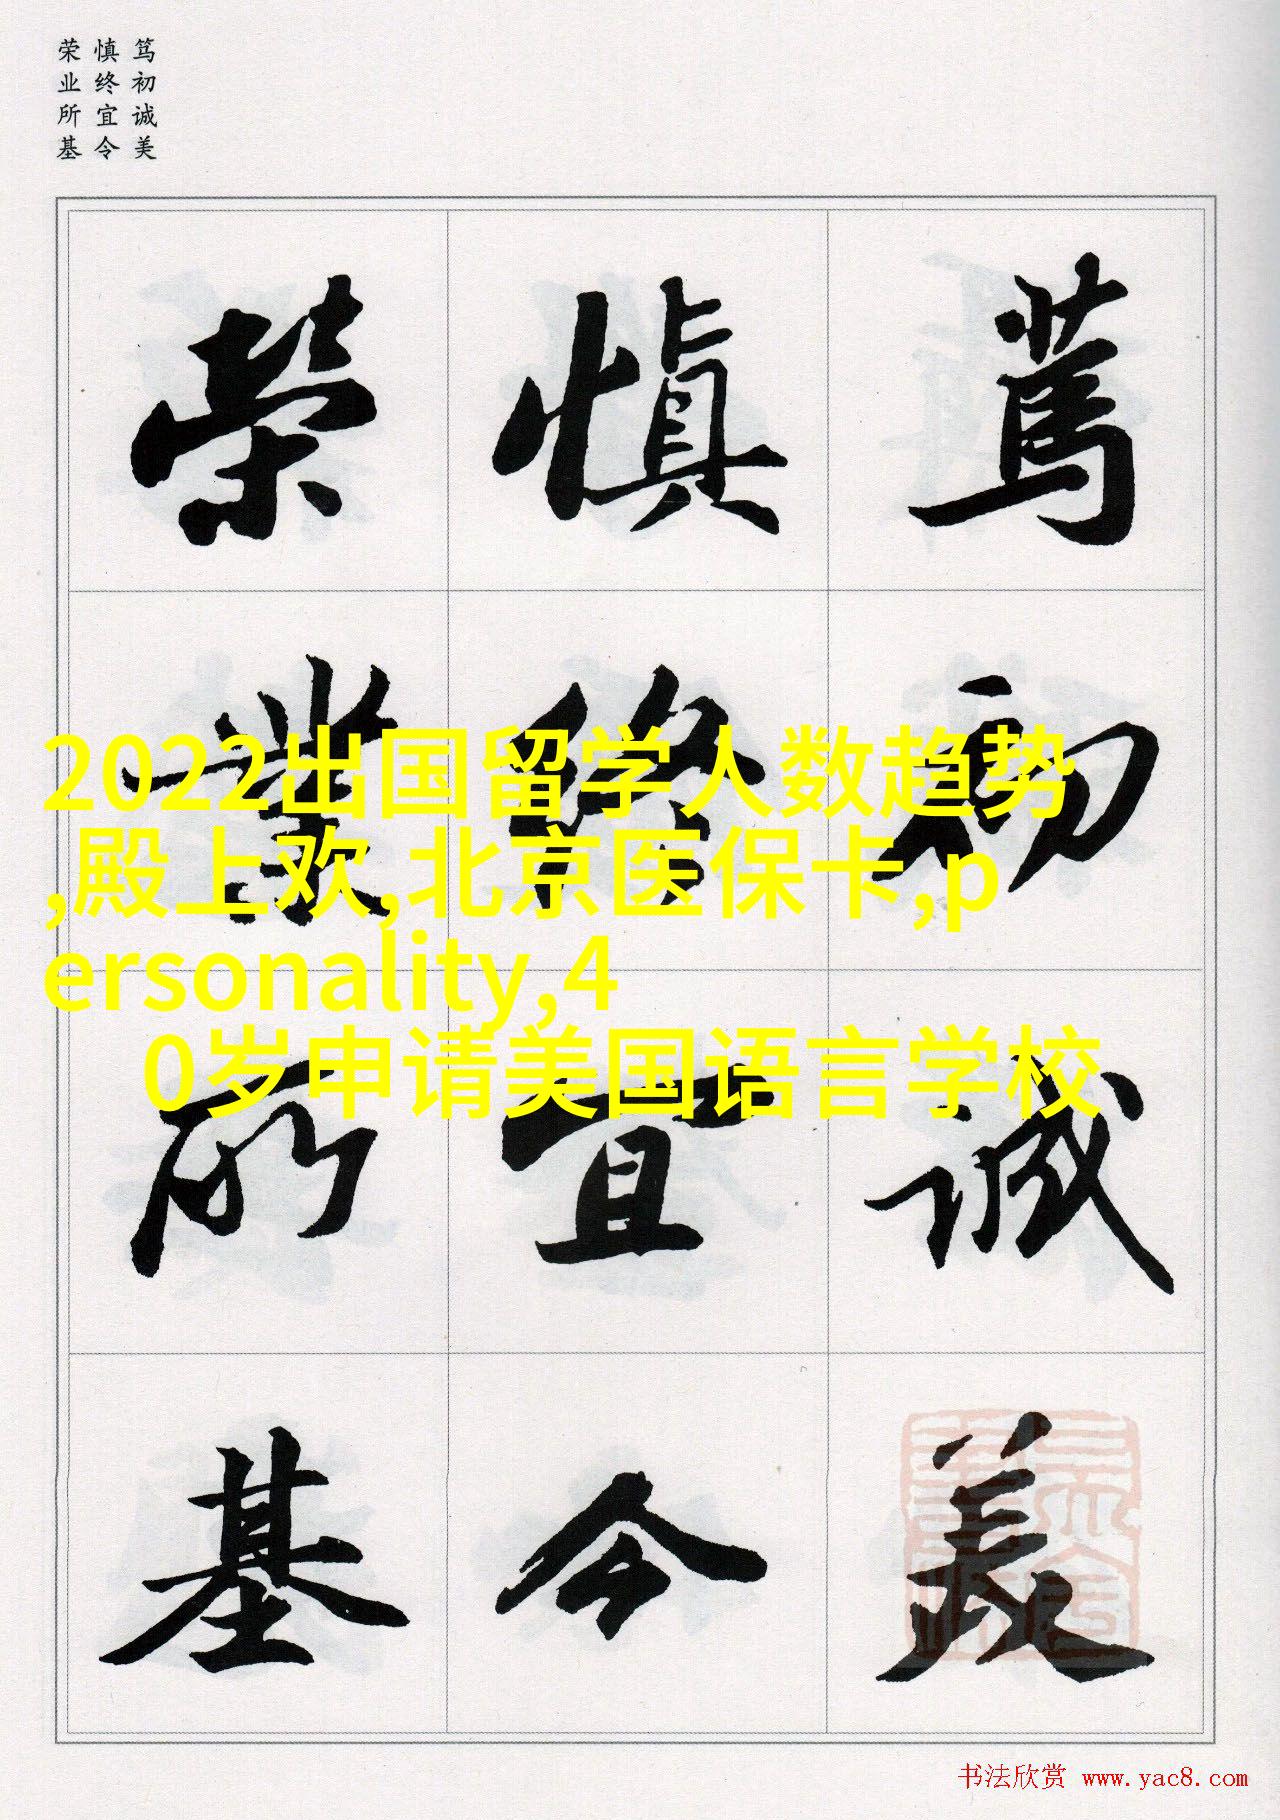 笃初诚美
慎终宜令
荣业所基
篤初誠美
慎終宜令
榮業所基
2022出国留学人数趋势
,殿上欢,北京医保卡,p
ersonality,4
0岁申请美国语言学校
书法欣赏 www.yac8.com